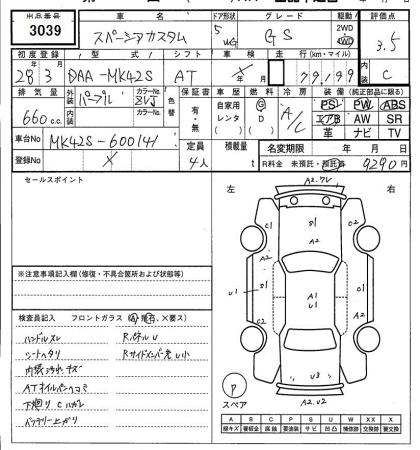 出品番号 車名 ドア形状 グレード 駆動 評価点
3039 スペーシアカスタム 5 WG GS 2WD 4WD 3.5
初度登録 型式 シフト 車検 走行 (km・マイル) 内装
28 3 DAA-MK42S AT 79,199 C
排気量 外装 カラーNo. 色替 保証書 車歴 燃料 冷房 装備 (純正部品に限る)
660 c.c. パープル ZVJ 有・無 自家用 レンタ ( ) G D ( ) A/C PS PW ABS
内装 カラーNo. エアB AW SR
革 ナビ TV
車台No MK42S-600141 定員 4人 積載量 t 名変期限 年 月 日
登録No R料金 未預託・預託済 9290円
セールスポイント
左 右
A2.フレ
C1 B1 C1
A2 A2
U1 B1 A1 U1 B1
C2 A2 C2
U3
A2.U2
※注意事項記入欄(修復・不具合箇所および状態等)
検査員記入 フロントガラス (A 飛石、×要ス)
ハンドルスレ RパネルU
シートヘタリ Rサイドメンバー先U小
内装汚れキズ
ATオイルパンヘコミ
下廻りCハガレ
バッテリー上がり
P
スペア
A B C P S U W X XX
線キズ 要板金 腐蝕 要塗装 サビ 凹凸 補修跡 交換跡 要交換